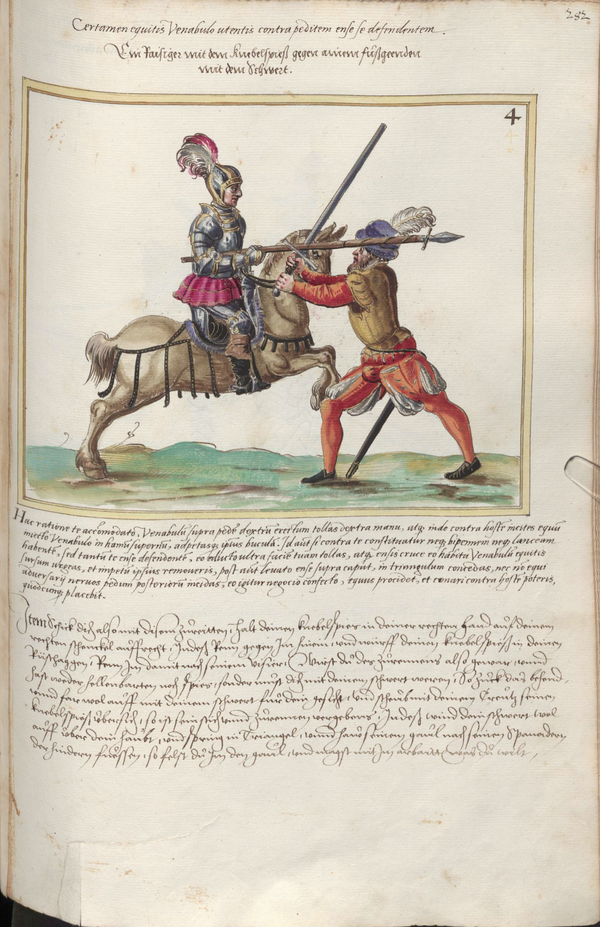 282
Certamen equitis Venabulo utentis contra peditem ense se defendentem.
Ein Raisiger mit dem Knebelspiess gegen ainem fuessgeenden
mit dem Schwert.
4
Hac ratione te accomodato, Venabulū supra pedē dextrū erectum tollas dextra manu, atq; inde contra hostē incites equū
Venabulo in hamū superiorē, adpetasq; ipsius buculā. Id aut si contra te constituatur neq; bipennem neq; lanceam
habente, sed tantū te ense defendente, eo educto ultra faciē tuam tollas, atq; ensis cruce eo habitu Venabulū equitis
sursum urgeas, et impetū ipsius removeris, post alit levato ense supra caput, in triangulum concedas, nec non equi
adversarij nervos pedum posteriorū incidas, eo igitur negocio confecto, equus procidet, et conari contra hostē poteris,
quodcunq; placebit.
Item Schick dich also mit disem Zureitten, halt deinen knebelspies in deiner rechten hand auf deinem
rechten schenckel auffrecht, Indess Renn gegen Im hinein, und würff deinen knebelspiess in deinen
Rüsthaggen, Renn Im damit nach seinem Visier, Würst du des Zurennens also gewar, unnd
hast weder hellenbarten noch spiess, sonder muest dich mit deinem schwert weeren, So Zuck das behend
unnd far wol auff mit deinem schwert für dein gesicht, und scheub mit deinem Creutz seinen
knebelspiess übersich, so ist sein stich und Zurennen vergebens, Indess wind dein schwert wol
auff über dein haubt, und spring in Triangel, unnd haw seinem gaul nach seinen Spanadern
der hindern füessen, so felt du Im den gaul, und magst mit Im arbaiten was du wilt.